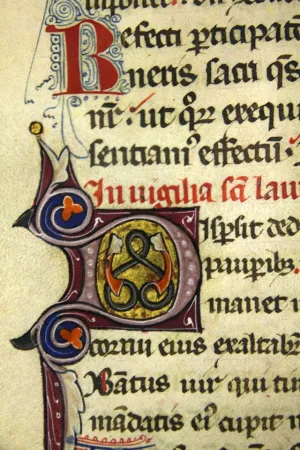 Refecti ꝑticipat
neris sacri qs
nr̄. ut quoꝝ exequi
sentiam' effectum
In uigilia sc̄i lau
Disꝑsit ded
pauperibꝫ
manet i
cornu eius exaltab
Beatus uir qui ti
mandatis ei' cupit n